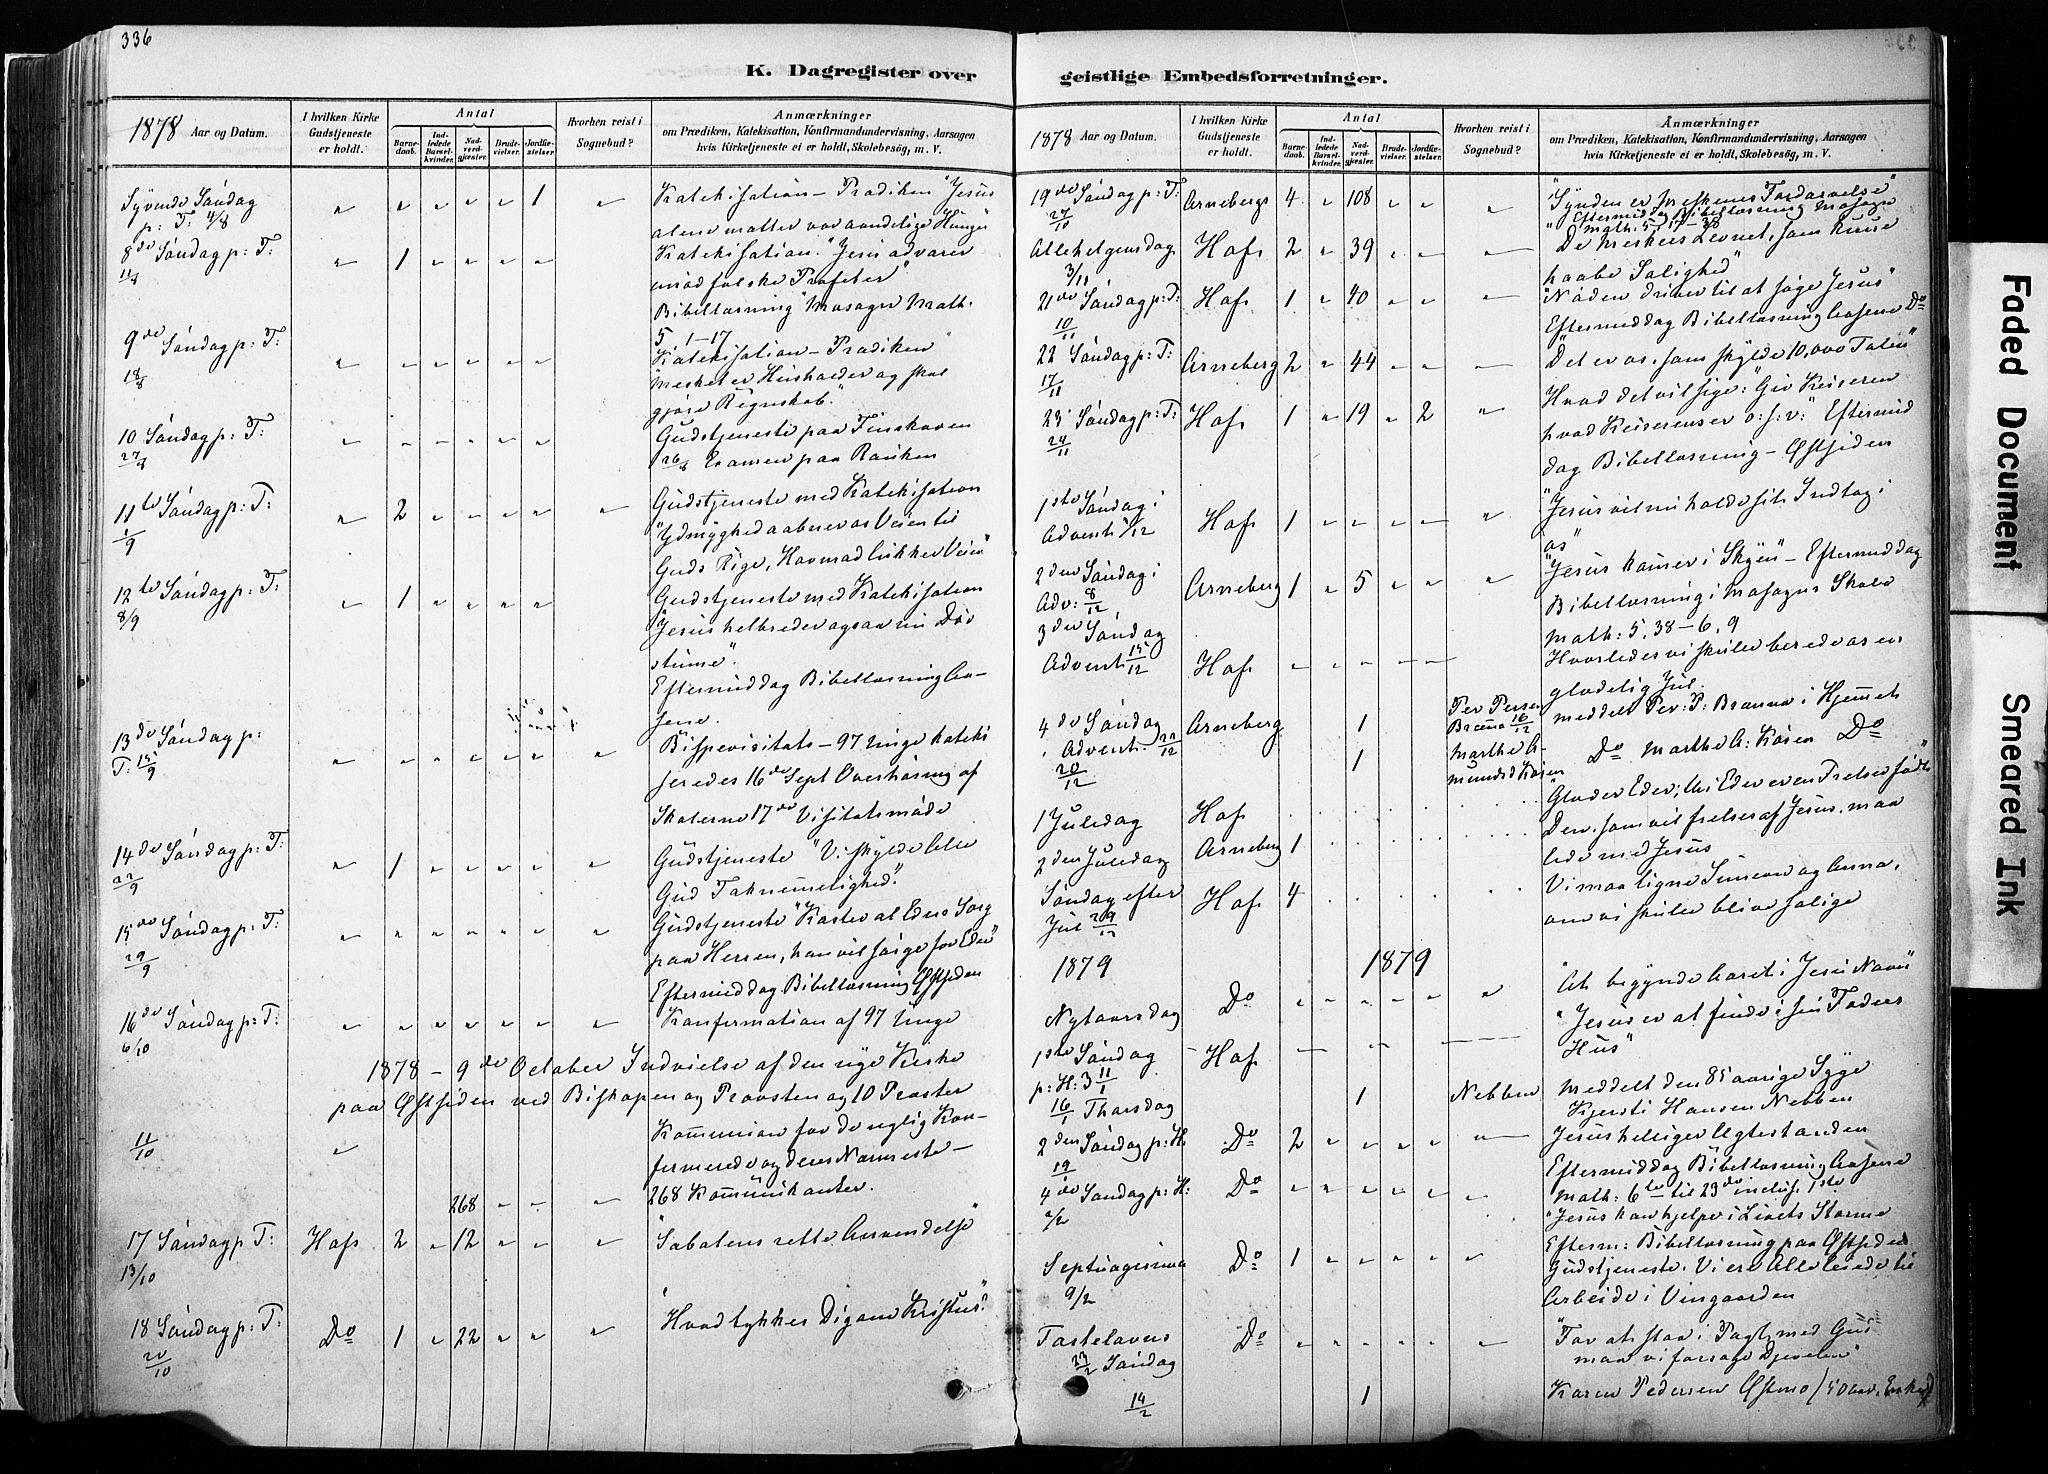 336
K. Dagregister over
1878 Aar og Datum.
I hvilken Kirke Gudstjeneste er holdt.
Antal
Barnedaab.
Indledede Barselkvinder.
Nadverdgjester.
Brudevielser.
Jordfæstelser.
Hvorhen reist i Sognebud?
Anmærkninger
om Prædiken, Katekisation, Konfirmandundervisning, Aarsagen
hvis Kirketjeneste ei er holdt, Skolebesøg, m. V.
Syvende Søndag p: T: 4/8 " " " " " 1 " Katekisation – Prædiken "Jesus
alene mætter vor aandelige Hunger
8de Søndag p: T: 11/8 " 1 " " " " Katekisation. "Jesu advarer
mod falske Profeter"
Bibellæsning Masager Math.
5, 1–17
9de Søndag p: T: 18/8 " " " " " " Katekisation – Prædiken "
Mesket er Husholder og skal
gjøre Regnskab."
10 Søndag p: T: " " " " " " Gudstjeneste paa Finskoven
26/8 Examen paa
11te Søndag p: T: 1/9 " 2 " " " " " Gudstjeneste med Katekisation
"Ydmyghed aabner os Veien til
Guds Rige, Hovmod lukker Veien"
12te Søndag p: T: 8/9 " 1 " " " " Gudstjeneste med Katekisation
"Jesus helbreder ogsaa nu Døv
stume".
Eftermiddag Bibellæsning Aa-
sene.
13de Søndag p: T: 15/9 " " " " " " " Bispevisitats – 97 Unge kateki
seredes 16de Sept Overhøring af
Skolerne 17de Visitatsmøde
14de Søndag p: T: 22/9 " 1 " " " " " Gudstjeneste "Vi skylde Alle
Gud Taknemmelighed".
15de Søndag p: T: 29/9 " " " " " " " Gudstjeneste "Kaster al Eders Sorg
paa Herren, han vil sørge for Eder"
Eftermiddag Bibellæsning Østsiden
16de Søndag p: T: 6/10 " " " " " " " Konfirmation af 97 Unge
1878 – 9de October Indvielse af den nye Kirke
paa Østsiden ved Biskopen og Provsten og 10 Præster
11/10 " Kommunion for de nylig Kon-
firmerede og deres Nærmeste –
268 " " " 268 Kommunikanter.
17 Søndag p T: 13/10 Hofs 2 " 12 " " " "Sabatens rette Anvendelse"
18 Søndag p: T: 20/10 Do 1 " 22 " " " Hvad tykkes Dig om Kristus?"
geistlige Embedsforretninger.
1878 Aar og Datum.
I hvilken Kirke Gudstjeneste er holdt.
Antal
Barnedaab.
Indledede Barselkvinder.
Nadverdgjester.
Brudevielser.
Jordfæstelser.
Hvorhen reist i Sognebud?
Anmærkninger
om Prædiken, Katekisation, Konfirmandundervisning, Aarsagen
hvis Kirketjeneste ei er holdt, Skolebesøg, m. V.
19de Søndag p: T: 27/10 Arnebergs 4 " 108 " " " "Synden er Meskenes Fordærvelse"
Eftermiddag Bibellæsning Masager
Math: 5, 17–38
Allehelgensdag 3/11 Hofs 2 " 39 " " " "De Meskers Levnet, som kunne
haabe Salighed"
21de Søndag p: T: 10/11 Hofs 1 " 40 " " " "Nøden driver til at søge Jesus"
Eftermiddag Bibellæsning Aasene Do
22 Søndag p: T: 17/11 Arneberg 2 " 44 " " " "Det er os, som skylde 10,000 Talen"
23 Søndag p: T: 24/11 Hofs 1 " 19 " 2 " Hvad det vil sige: "Giv Keiseren
hvad Keiserens er o: s: v:" Eftermid
dag Bibellæsning – Østsiden
1ste Søndag i Advent 1/12 Hofs 1 " " " " " "Jesus vil nu holde sit Indtog i
os"
2den Søndag i Adv: 8/12 Arneberg 1 " 5 " " " "Jesus kommer i Skyen" – Eftermiddag
Bibellæsning i Masagers Skole
Math: 5, 38–6, 9
3die Søndag Advent 15/12 Hofs " " " " Hvorledes vi skulle berede os en
glædelig Jul.
4de Søndag Advent 22/12 Arneberg 1 Per Persen Brænna 16/12 Meddelt Per: P: Brænna i Hjemmet
20/12 1 Marthe A- mundsd Køsen Do Marthe A: Køsen Do
1 Juledag Hofs "Glæder Eder; thi Eder er en Frelser født"
2den Juledag Arneberg 1 Den, som vil frelses af Jesus, maa
lide med Jesus
Søndag efter Jul 29/12 Hofs 4 Vi maa ligne Simeon og Anna,
om vi skulle blive salige
1879 1879
Nytaarsdag Do " " " " " " "At begynde Aaret i Jesu Navn"
1ste Søndag p: H: Hofs "Jesus er at finde i sin Faders
Hus"
16/1 Thorsdag 1 Nebben Meddelt den 85 aarige Syge
Kjersti Hansen Nebben
2den Søndag p: H. 19/1 Do 2 " " " " " Jesus helliger Ægtestanden
Eftermiddag Bibellæsning Aasene
Math: 6te til 23de inclus. 1ste
4de Søndag p: H: 2/2 Do " " " " " " "Jesus kan hjelpe i Livets Storme
Efterm: Bibellæsning paa Østsiden
Septuagesima 9/2 Do 1 " " " " " Gudstjeneste. Vi ere Alle leiede til
Arbeide i Vingaarden
Fastelavns 23/2 Søndag Do " " " " " " "For at staa i Pagt med Gud
maa vi forsage Djevelen"
14/2 1 Karen Pedersen Østmo
Faded Document
Smeared Ink